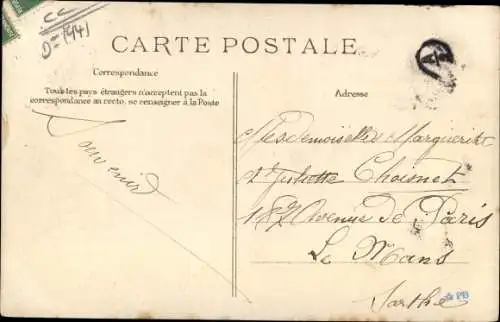 CC
D= 1941
CARTE POSTALE
A
Correspondance
Tous les pays étrangers n'acceptent pas la
correspondance au recto, se renseigner à la Poste
Souvenir
Adresse
Mesdemoiselles Marguerite
et Juliette Choisnet
187 Avenue de Paris
Le Mans
Sarthe
PB